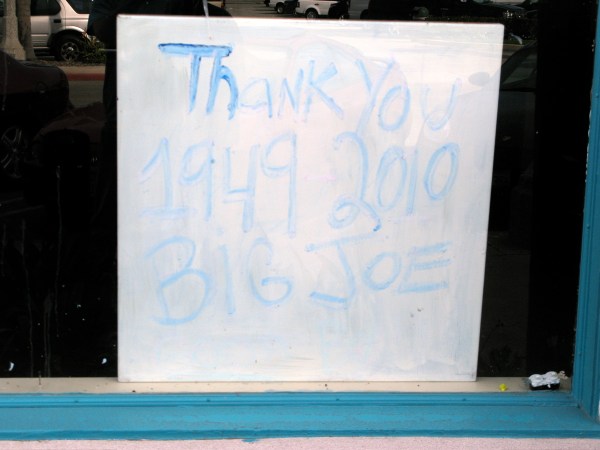 Thank You
1949 2010
BIG JOE